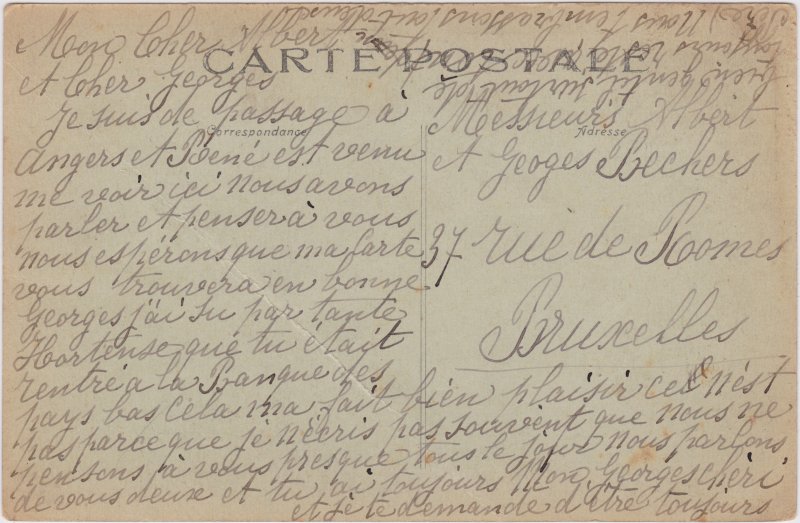 CARTE POSTALE
Correspondance
Adresse
Mon Cher Albert
et Cher Georges
Je suis de passage à
Angers et René est venu
me voir ici nous avons
parler et penser à vous
nous espérons que ma Carte
vous trouvera en bonne
Georges j'ai su par tante
Hortense que tu était
rentré a la Banque des
pays bas Cela ma fait bien plaisir ce Nést
pas parce que je nécris pas souvent que nous ne
pensons à vous presque tous le jour nous parlons
de vous deux et tu ai toujours Mon Georges chéri
et je te demande d'être toujours
bien gentil surtout
toujours
Nous t'embrassons
Messieurs Albert
et Geoges Bechers
37 rue de Romes
Bruxelles